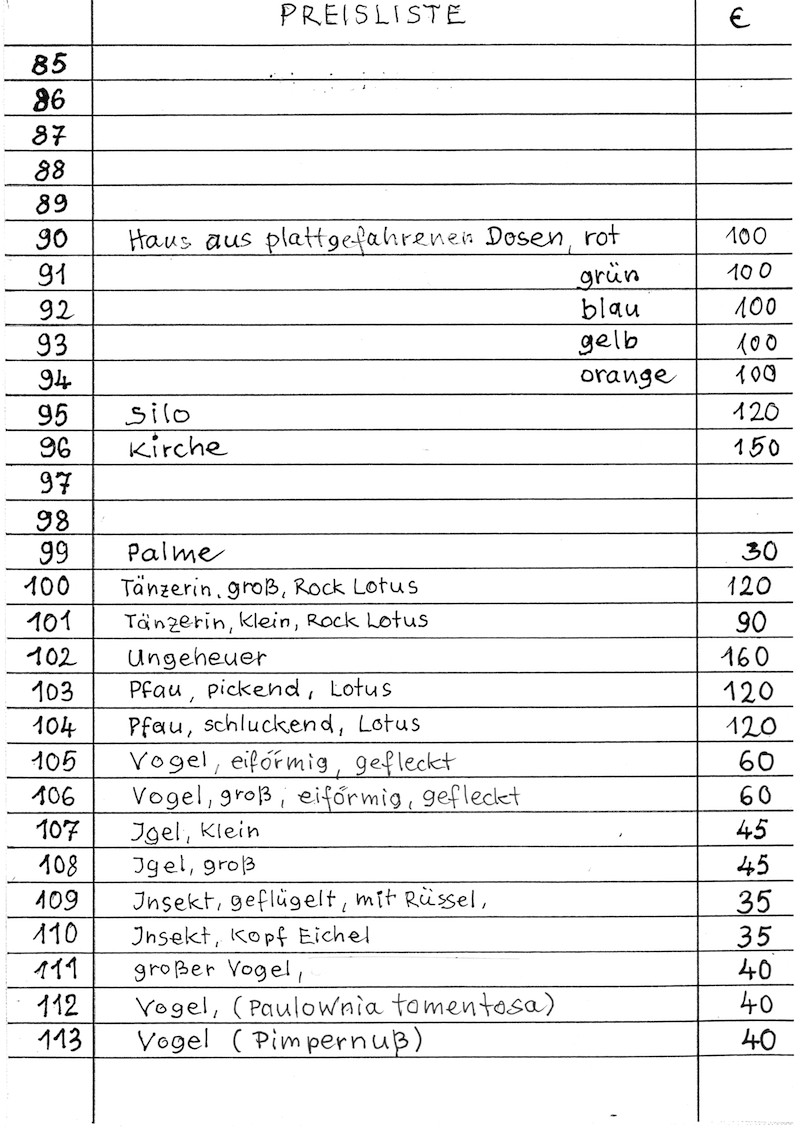 PREISLISTE €
85
86
87
88
89
90 Haus aus plattgefahrenen Dosen, rot 100
91 grün 100
92 blau 100
93 gelb 100
94 orange 100
95 Silo 120
96 Kirche 150
97
98
99 Palme 30
100 Tänzerin, groß, Rock Lotus 120
101 Tänzerin, klein, Rock Lotus 90
102 Ungeheuer 160
103 Pfau, pickend, Lotus 120
104 Pfau, schluckend, Lotus 120
105 Vogel, eiförmig, gefleckt 60
106 Vogel, groß, eiförmig, gefleckt 60
107 Jgel, klein 45
108 Jgel, groß 45
109 Jnsekt, geflügelt, mit Rüssel, 35
110 Jnsekt, Kopf Eichel 35
111 großer Vogel, 40
112 Vogel, (Paulownia tomentosa) 40
113 Vogel (Pimpernuß) 40